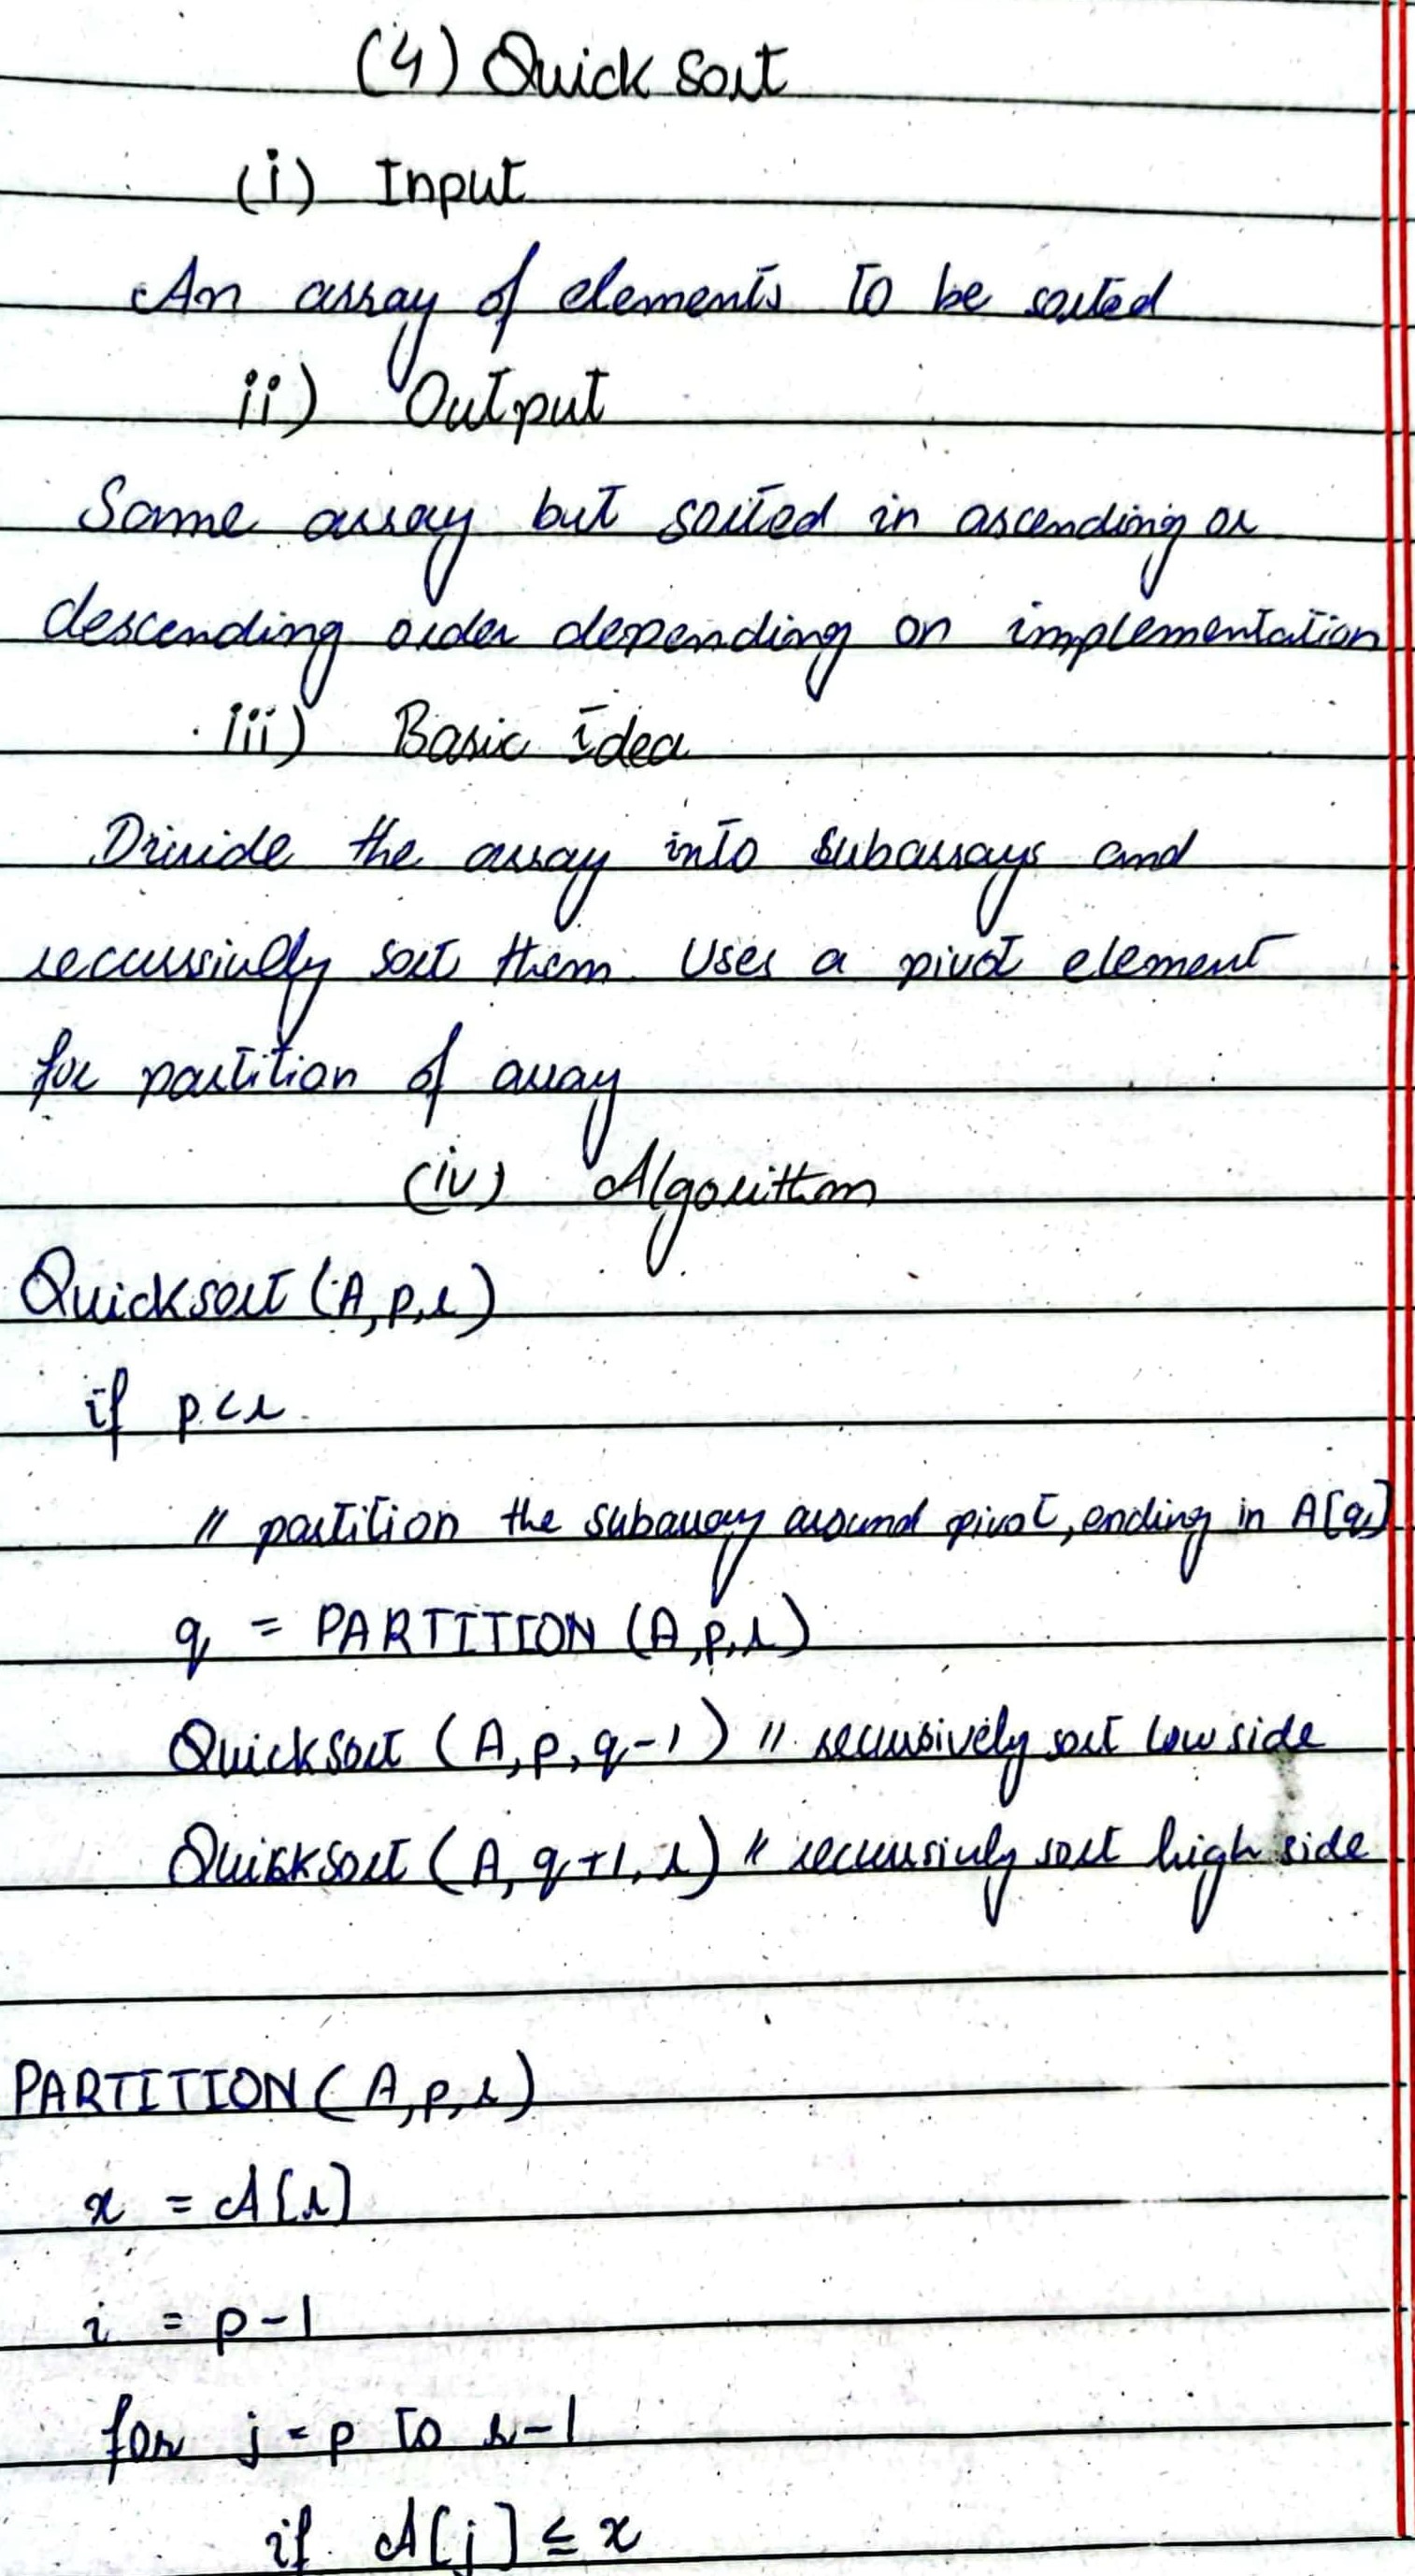 (4) Quick Sort
(i) Input
An array of elements to be sorted
ii) Output
Same array but sorted in ascending or
descending order depending on implementation
iii) Basic idea
Divide the array into subarrays and
recursively sort them. Uses a pivot element
for partition of array
(iv) Algorithm
Quicksort (A, p, r)
if p < r
// partition the subarray around pivot, ending in A[q]
q = PARTITION (A, p, r)
Quicksort (A, p, q-1) // recursively sort low side
Quicksort (A, q+1, r) // recursively sort high side
PARTITION (A, p, r)
x = A[r]
i = p-1
for j = p to r-1
if A[j] ≤ x